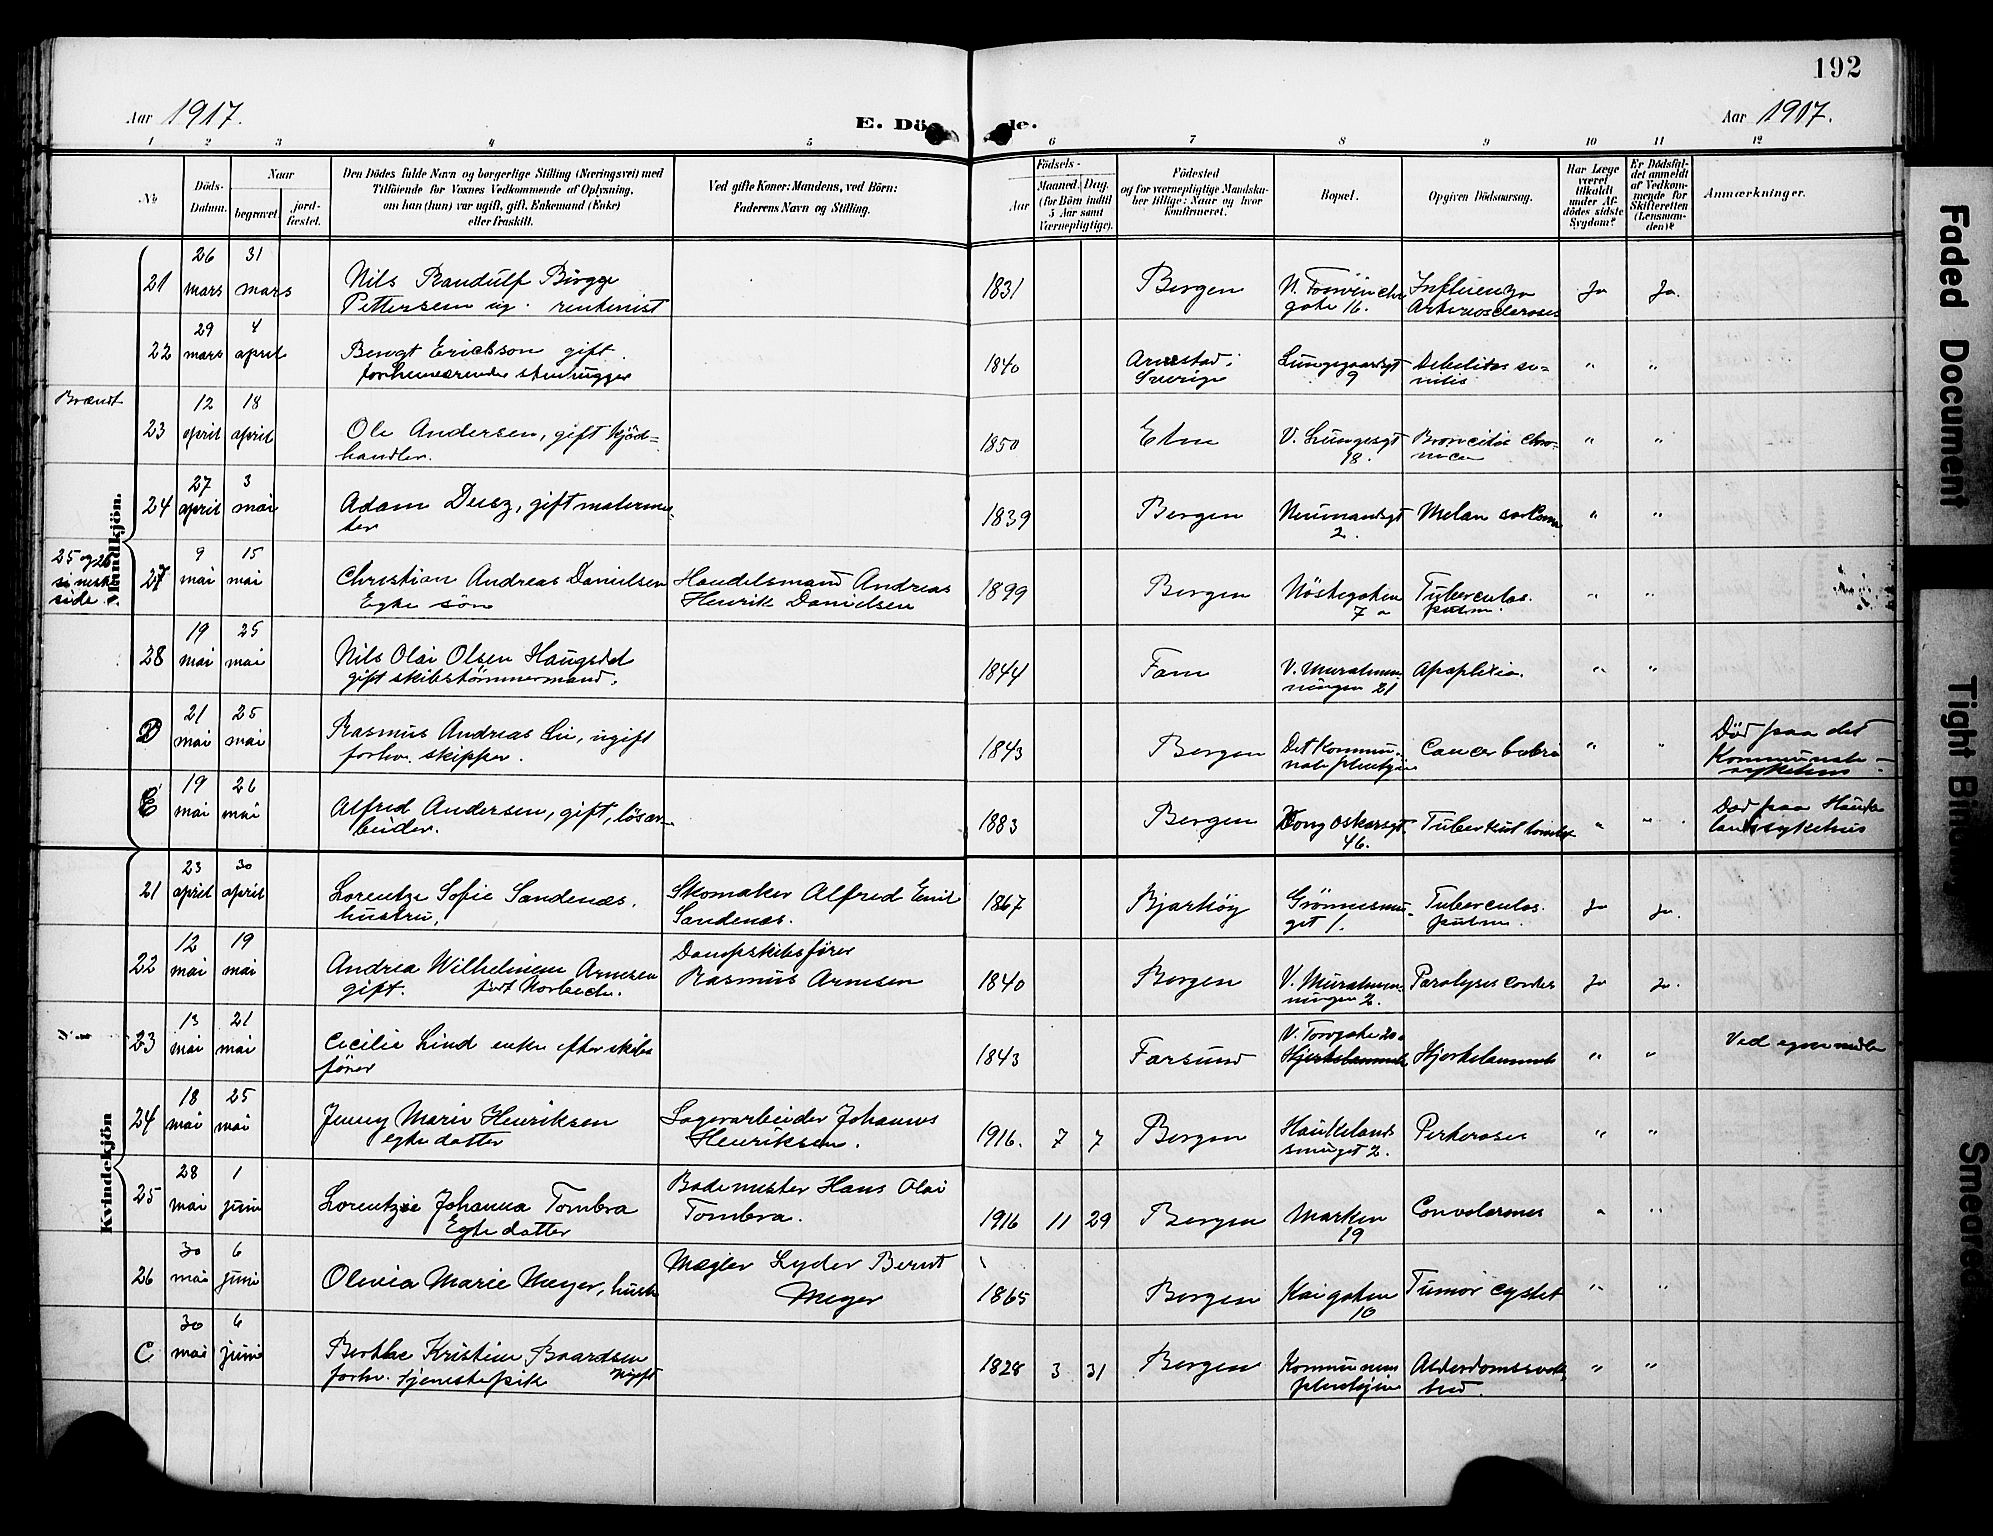 192
Aar 1917.
E. Dö de.
Aar 1917.
1 2 3 4 5 6 7 8 9 10 11 12
No
Döds-
Datum.
Naar
begravet.
jord-
fæstet.
Den Dödes fulde Navn og borgerlige Stilling (Næringsvei) med
Tilföiende for Voxnes Vedkommende af Oplysning,
om han (hun) var ugift, gift, Enkemand (Enke)
eller fraskilt.
Ved gifte Koner: Mandens, ved Börn:
Faderens Navn og Stilling.
Födsels-
Aar
Maaned. Dag.
(for Börn indtil
5 Aar samt
Værnepligtige).
Födested
og for værnepligtige Mandska-
ber tillige: Naar og hvor
konfirmeret.
Bopæl.
Opgiven Dödsaarsag.
Har Læge
været
tilkaldt
under Af-
dödes sidste
Sygdom?
Er Dödsfal-
det anmeldt
af Vedkom-
mende for
Skifteretten
(Lensman-
den)?
Anmærkninger.
Mandkjön.
21 26 mars 31 mars
Nils Randulf Birger
Pettersen ug. rentenist
1831 Bergen
gate 16.
Influenza
Arteriosclerose
Ja Ja.
22 29 mars 4 april
Bengt Ericsson gift
forhenværende
1840
Sverige
Lungegaardsgt
9
Debilitas se-
nilis
" "
Brændt
23 12 april 18 april
Ole Andersen, gift kjöd-
handler.
1850 Etne
V. Lungesgt
18.
Broncitis chro-
nica
" "
24 27 april 3 mai
Adam Deisz, gift malermes-
ter
1839 Bergen
Neumandsgt
2.
Melan sarkom
" "
25 og 26
se neste
side.
27 9 mai 15 mai
Christian Andreas Danielsen
Egte sön
Handelsmand Andreas
Henrik Danielsen
1899 Bergen
Nöstegaten
7 a
Tuberculos.
pulm.
" "
28 19 mai 25 mai
Nils Olai Olsen Haugsdal
gift skibstömmermand.
1844 Fane
V. Muralmen-
ningen 21
Apoplexia.
" "
D 21 mai 25 mai
Rasmus Andreas Lie, ugift
forhv. skipper.
1843 Bergen
Det kommu-
nale pleiehjem
Cancer labia
" "
Död paa det
Kommunale
sykehus.
E 19 mai 26 mai
Alfred Andersen, gift, lösar-
beider.
1883 Bergen
Kong Oskarsgt.
46.
" "
Död paa Hauke
landssykehus
Kvindekjön
21 23 april 30 april
Lorentze Sofie Sandenæs,
hustru,
Skomaker Alfred Emil
Sandenæs.
1867 Bjarköy
Grönnesmu-
get 1.
Tuberculos.
pulm.
Ja Ja.
22 12 mai 19 mai
Andrea Wilhelmine Arnesen
gift. födt Norbech.
Dampskibsförer
Rasmus Arnesen
1840 Bergen
V. Muralmen-
ningen 2.
Paralyses cordis
Ja Ja.
23 13 mai 21 mai
Cecilie Lind enke efter skibs
förer
1843 Farsund
V. Torvgate 20a
Hjertelammelse
Hjertelammelse
" "
Ved egen
24 18 mai 25 mai
Jenny Marie Henriksen
egte datter
Lagerarbeider Johannes
Henriksen.
1916. 7 7 Bergen
Haukelands
smuget 2.
" "
25 28 mai 1 juni
Lorentzie Johanna Tombra
Egte datter
Bademester Hans Olai
Tombra.
1916 11 29 Bergen
Marken
19
" "
26 30 mai 6 juni
Olivia Marie Meyer, hustr
Mægler Lyder Bernt
Meyer
1865 Bergen
Kaigaten
10
Tumor cystet
" "
C 30 mai 6 juni
Berthe Kristine Baardsen
forhv. tjenestepik ugift
1828 3 31 Bergen
Kommunens
pleiehjem
Alderdomssvak
hed.
" "
Faded Document
Tight Bin
Smeared